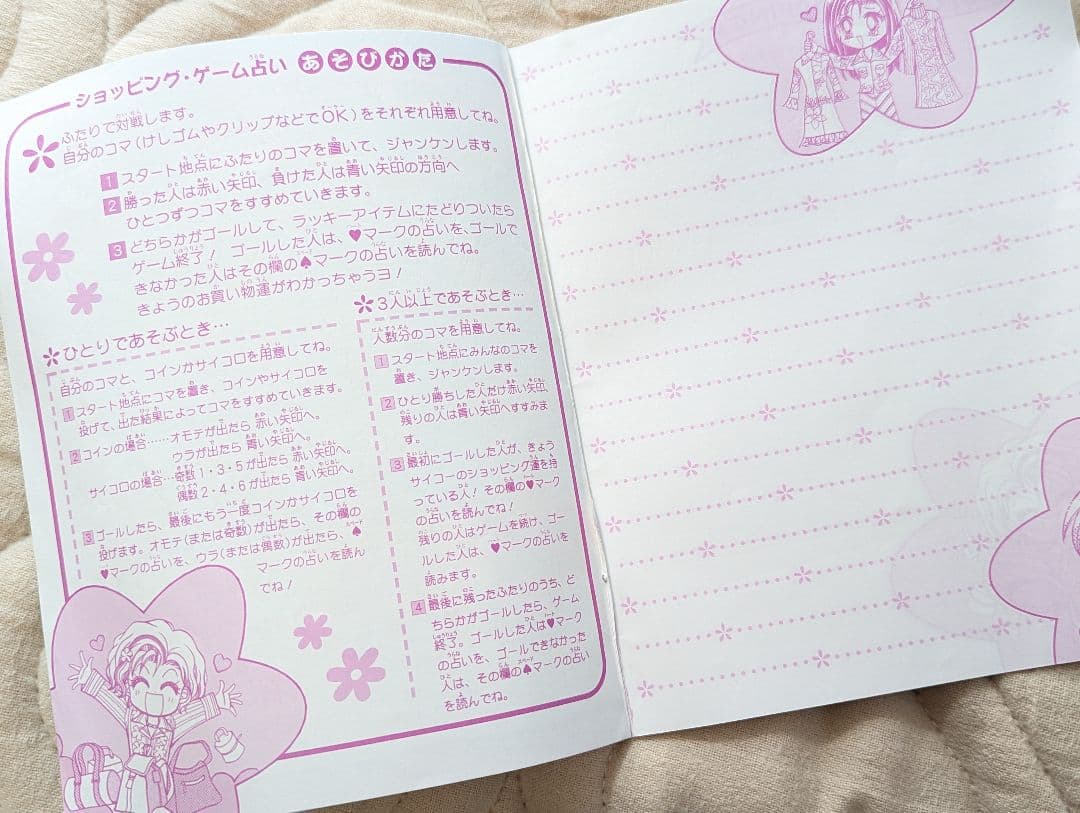 ショッピング・ゲーム占い あそびかた
ふたりで対戦します。
自分のコマ(けしゴムやクリップなどでOK)をそれぞれ用意してね。
1 スタート地点にふたりのコマを置いて、ジャンケンします。
2 勝った人は赤い矢印、負けた人は青い矢印の方向へ
ひとつずつコマをすすめていきます。
3 どちらかがゴールして、ラッキーアイテムにたどりついたら
ゲーム終了! ゴールした人は、♥マークの占いを、ゴールで
きなかった人はその欄の♠マークの占いを読んでね。
きょうのお買い物運がわかっちゃうヨ!
ひとりであそぶとき…
自分のコマと、コインかサイコロを用意してね。
1 スタート地点にコマを置き、コインやサイコロを
投げて、出た結果によってコマをすすめていきます。
2 コインの場合……オモテが出たら 赤い矢印へ。
ウラが出たら 青い矢印へ。
サイコロの場合…奇数1・3・5が出たら 赤い矢印へ。
偶数2・4・6が出たら 青い矢印へ。
3 ゴールしたら、最後にもう一度コインかサイコロを
投げます。オモテ(または奇数)が出たら、その欄の
♥マークの占いを、ウラ(または偶数)が出たら、♠
マークの占いを読ん
でね!
3人以上であそぶとき…
人数分のコマを用意してね。
1 スタート地点にみんなのコマを
置き、ジャンケンします。
2 ひとり勝ちした人だけ赤い矢印、
残りの人は青い矢印へすすみま
す。
3 最初にゴールした人が、きょう
サイコーのショッピング運を持
っている人! その欄の♥マーク
の占いを読んでね!
残りの人はゲームを続け、ゴー
ルした人は、♥マークの占いを
読みます。
4 最後に残ったふたりのうち、ど
ちらかがゴールしたら、ゲーム
終了。ゴールした人は♥マーク
の占いを、ゴールできなかった
人は、その欄の♠マークの占い
を読んでね。